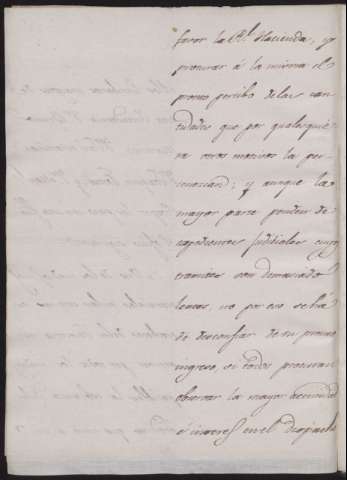 favor la Rl. Hacienda, y
procurar á la misma el
pronto percibo de las can
tidades que por qualesquie
ra otros motivos la per
tenezcan; y aunque la
mayor parte penden de
expedientes judiciales cuyo
tramites son demasiado
lentos, no por eso se há
de desconfiar de su pronto
ingreso, si todos procuran
observar la mayor actividad
é interes en el despacho